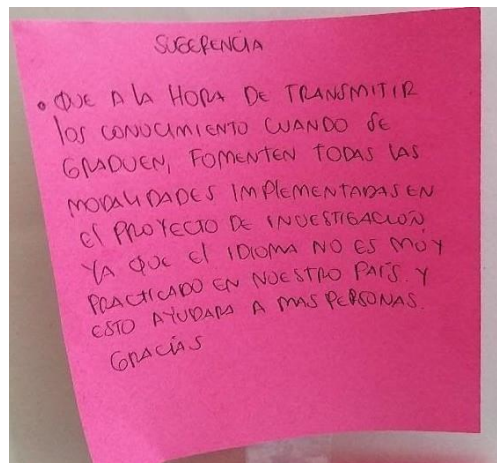 SUGERENCIA
• QUE A LA HORA DE TRANSMITIR
los CONOCIMIENTO CUANDO SE
GRADUEN, FOMENTEN TODAS LAS
MODALIDADES IMPLEMENTADAS EN
El PROYECTO DE INVESTIGACIÓN
YA QUE El IDIOMA NO ES MUY
PRACTICADO EN NUESTRO PAÍS. Y
ESTO AYUDARA A MAS PERSONAS.
GRACIAS